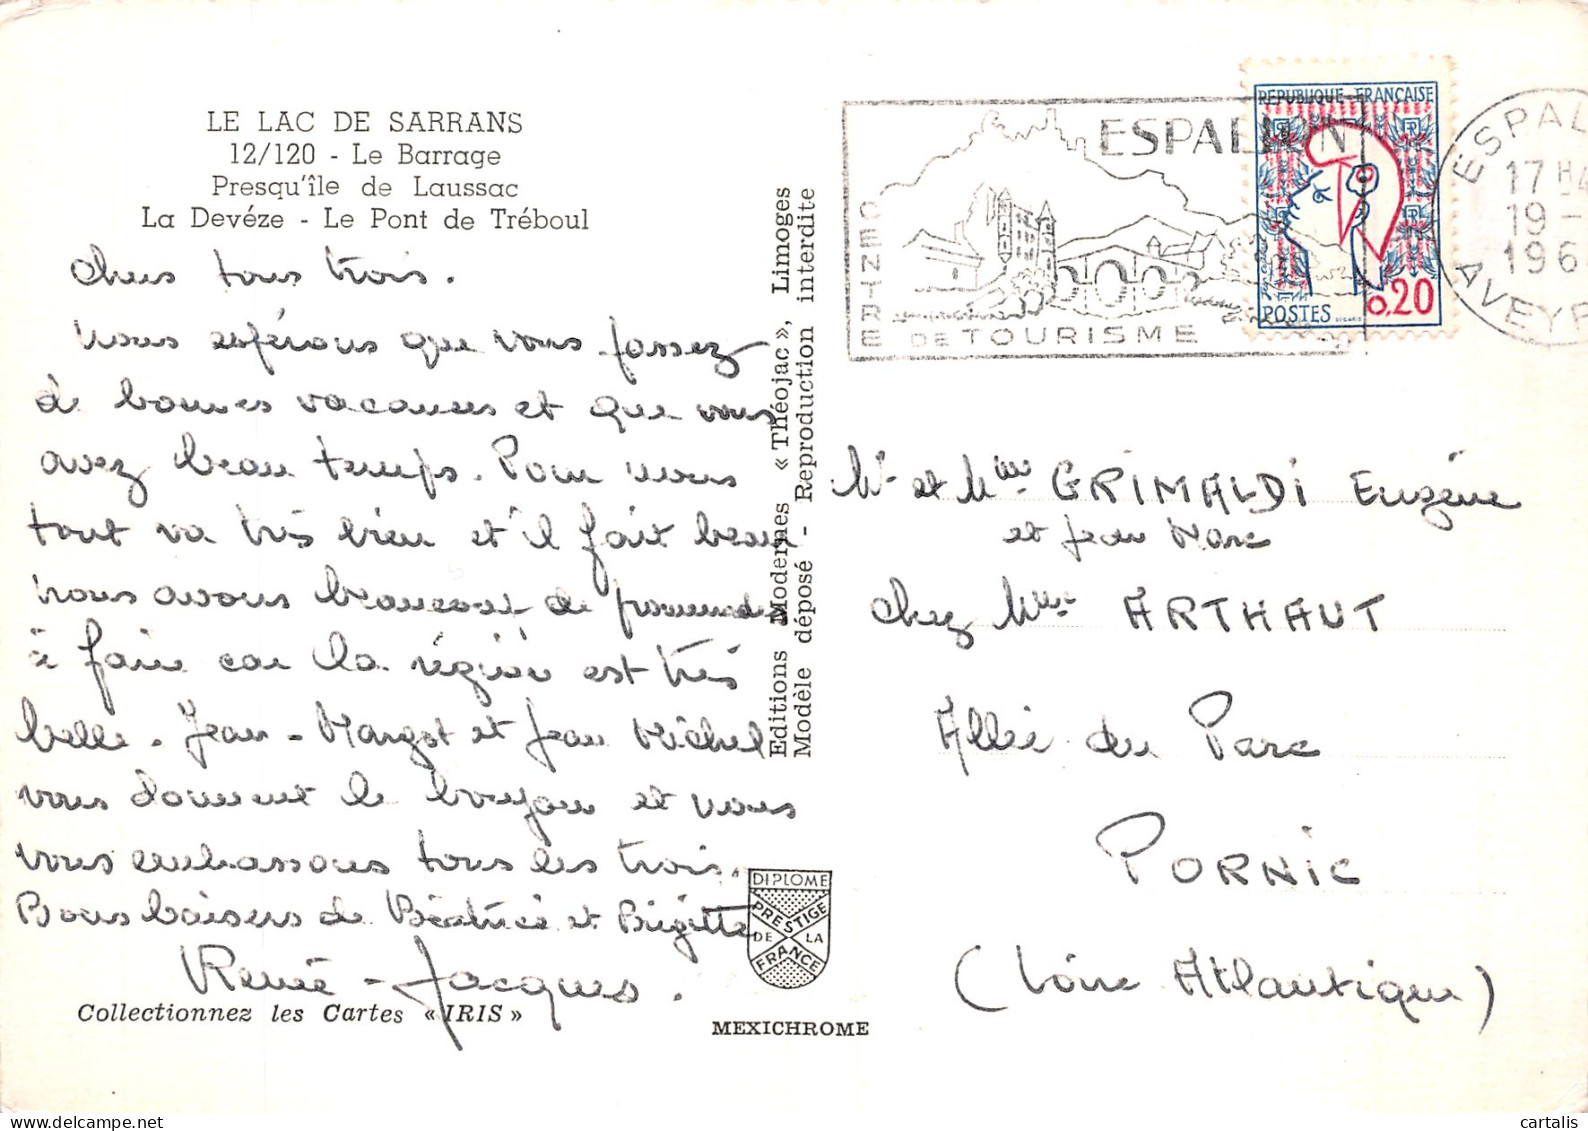 LE LAC DE SARRANS
12/120 - Le Barrage
Presqu'île de Laussac
La Devéze - Le Pont de Tréboul
Chers tous trois.
Nous espérons que vous passez
de bonnes vacances et que vous
avez beau temps. Pour nous
tout va très bien et il fait beau
nous avons beaucoup de promenades
à faire car la région est très
belle. Jean-Margot et Jean Michel
vous donnent le bonjour et nous
vous embrassons tous les trois.
Bons baisers de Béatrice et Brigitte
Renée - Jacques.
Collectionnez les Cartes « IRIS »
Editions Modernes « Théojac », Limoges
Modèle déposé - Reproduction interdite
DIPLOME
PRESTIGE
DE LA
FRANCE
MEXICHROME
ESPALION
CENTRE
DE TOURISME
REPUBLIQUE FRANÇAISE
POSTES
0,20
ESPAL
17 H 4
19 -
196
AVEYR
Mr et Mme GRIMALDI Eugène
et Jean Marc
chez Mme ARTHAUT
Allée du Parc
PORNIC
(Loire Atlantique)
cartalis
delcampe.net